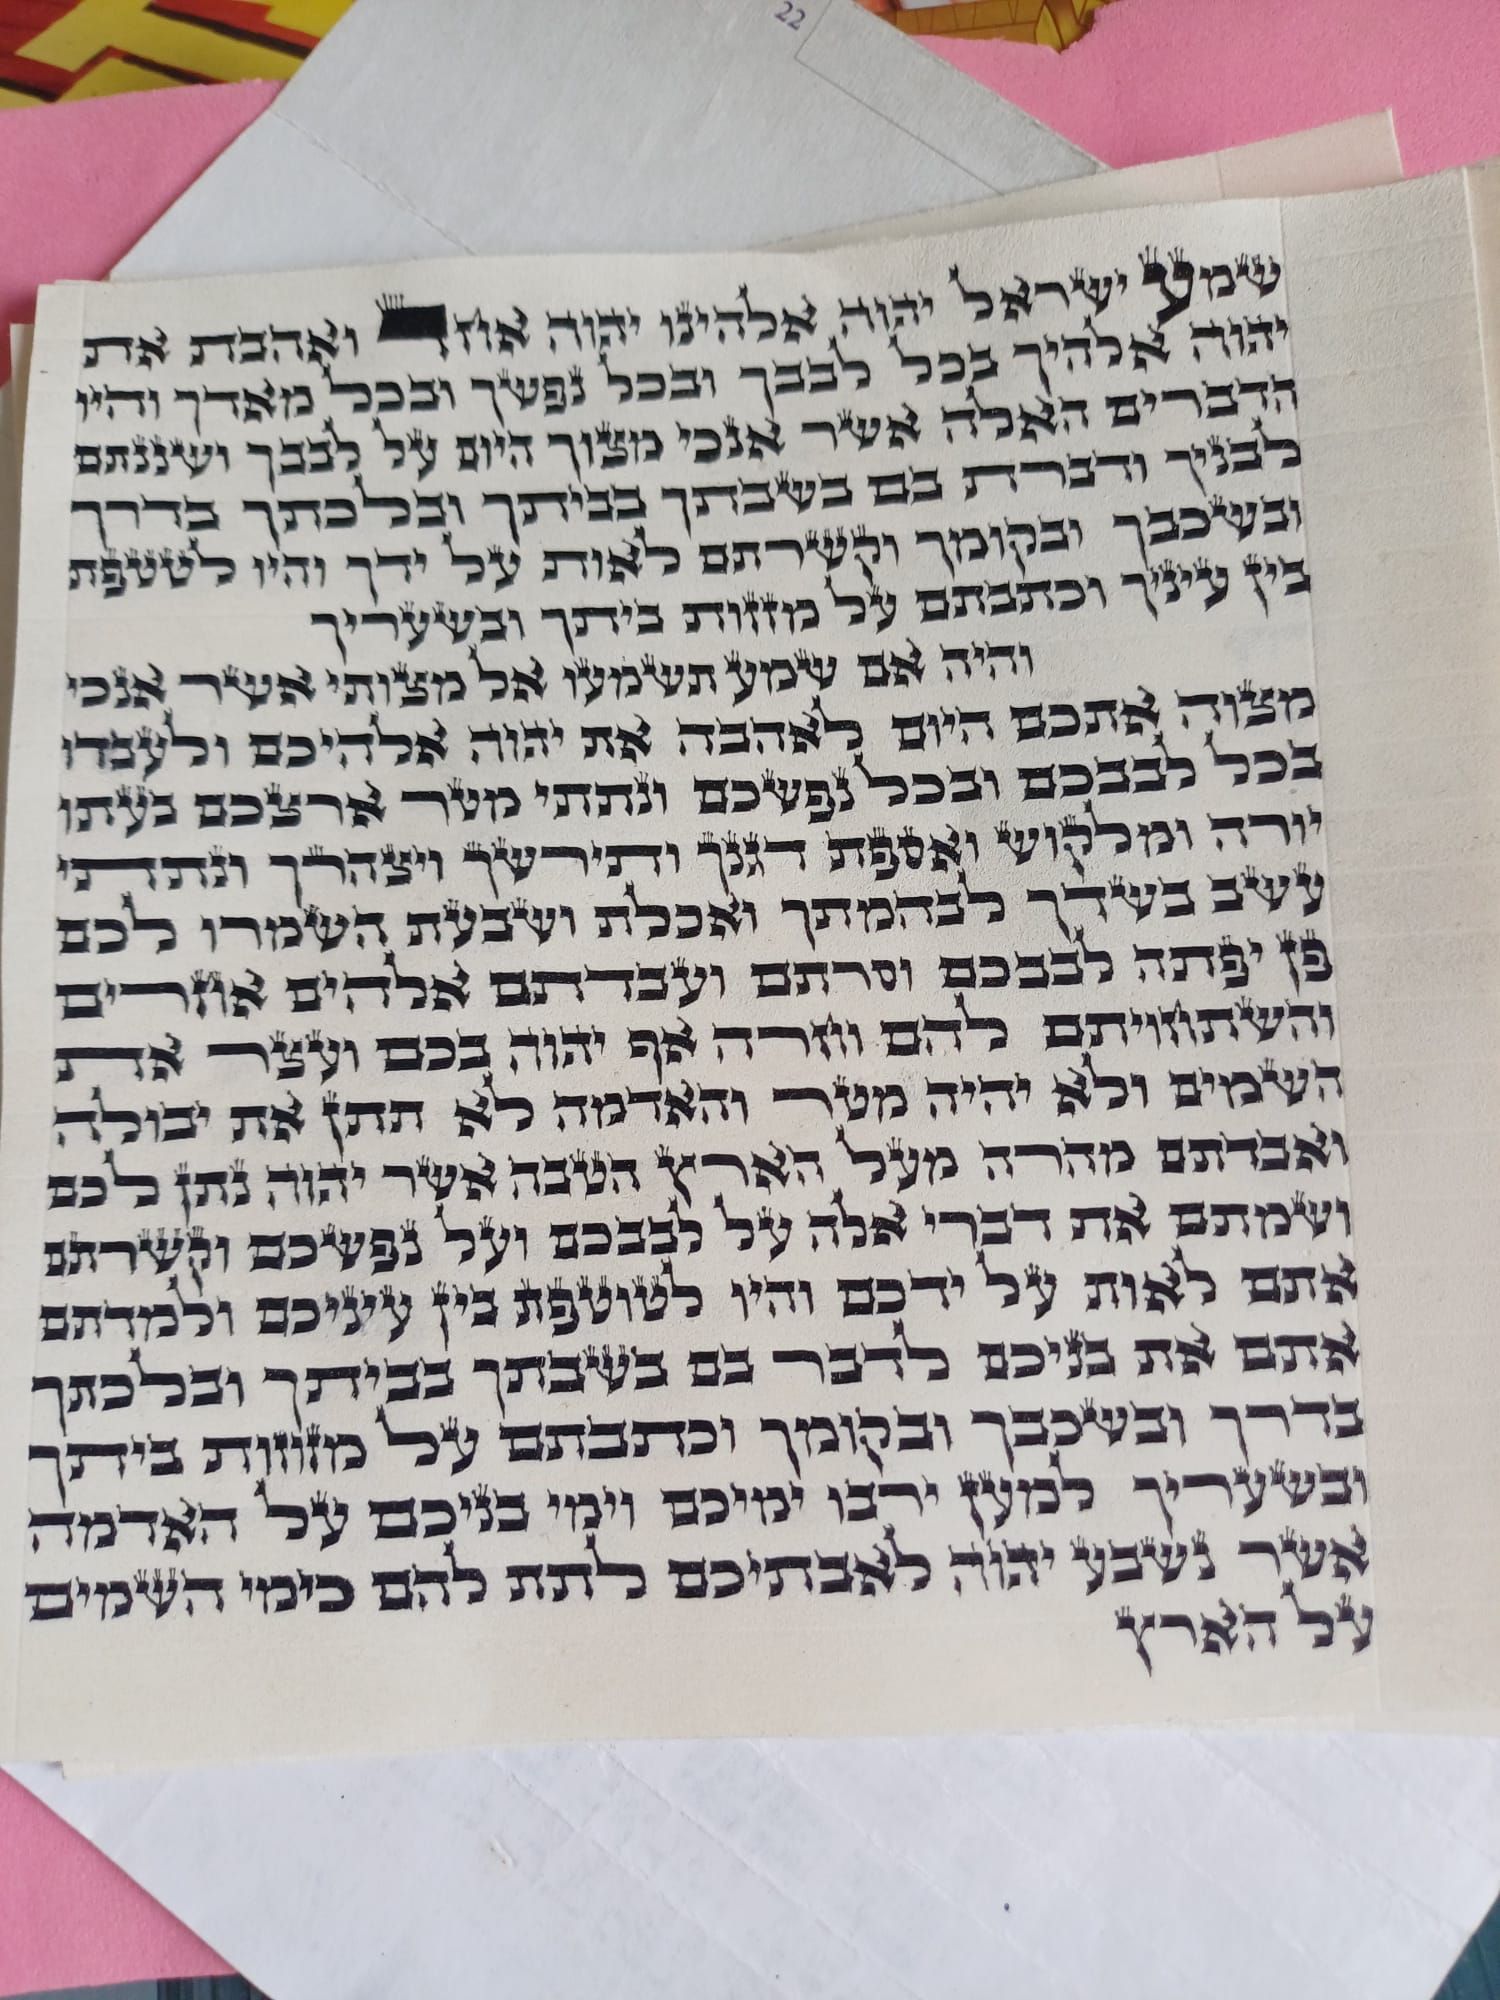 22
שמע ישראל יהוה אלהינו יהוה אחד ואהבת את
יהוה אלהיך בכל לבבך ובכל נפשך ובכל מאדך והיו
הדברים האלה אשר אנכי מצוך היום על לבבך ושננתם
לבניך ודברת בם בשבתך בביתך ובלכתך בדרך
ובשכבך ובקומך וקשרתם לאות על ידך והיו לטטפת
בין עיניך וכתבתם על מזוזות ביתך ובשעריך
והיה אם שמע תשמעו אל מצותי אשר אנכי
מצוה אתכם היום לאהבה את יהוה אלהיכם ולעבדו
בכל לבבכם ובכל נפשכם ונתתי מטר ארצכם בעתו
יורה ומלקוש ואספת דגנך ותירשך ויצהרך ונתתי
עשב בשדך לבהמתך ואכלת ושבעת השמרו לכם
פן יפתה לבבכם וסרתם ועבדתם אלהים אחרים
והשתחויתם להם וחרה אף יהוה בכם ועצר את
השמים ולא יהיה מטר והאדמה לא תתן את יבולה
ואבדתם מהרה מעל הארץ הטבה אשר יהוה נתן לכם
ושמתם את דברי אלה על לבבכם ועל נפשכם וקשרתם
אתם לאות על ידכם והיו לטוטפת בין עיניכם ולמדתם
אתם את בניכם לדבר בם בשבתך בביתך ובלכתך
בדרך ובשכבך ובקומך וכתבתם על מזוזות ביתך
ובשעריך למען ירבו ימיכם וימי בניכם על האדמה
אשר נשבע יהוה לאבתיכם לתת להם כימי השמים
על הארץ